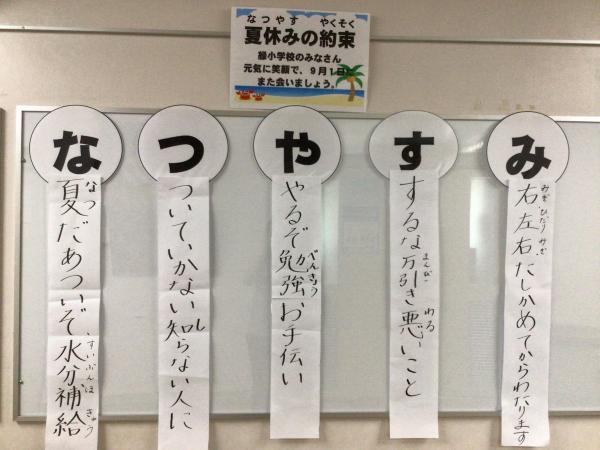 なつやす やくそく
夏休みの約束
緑小学校のみなさん
元気に笑顔で、9月1日に
また会いましょう。
な
つ
や
す
み
なつ
夏だあついぞ水分補給
すいぶんほきゅう
ついていかない知らない人に
し
やるぞ勉強お手伝い
べんきょう
するな万引き悪いこと
まんび
わる
右左右たしかめてからわたります
みぎひだりみぎ